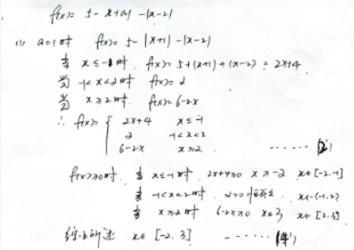 f(x)= 5-|x+a|-|x-2|
(1) a=1时 f(x)=5-|x+1|-|x-2|
当 x≤-1时. f(x)=5+(x+1)+(x-2)=2x+4
当 -1<x<2时 f(x)=2
当 x≥2时. f(x)=6-2x
∴ f(x)={ 2x+4 x≤-1
2 -1<x<2
6-2x x≥2. ......(2')
f(x)≥0时. 当 x≤-1时 2x+4≥0 x≥-2 x∈[-2,-1]
当 -1<x<2时. 2>0 x∈(-1,2)
当 x≥2时 6-2x≥0 x≤3 x∈[2,3]
综上所述 x∈[-2,3] ......(4')